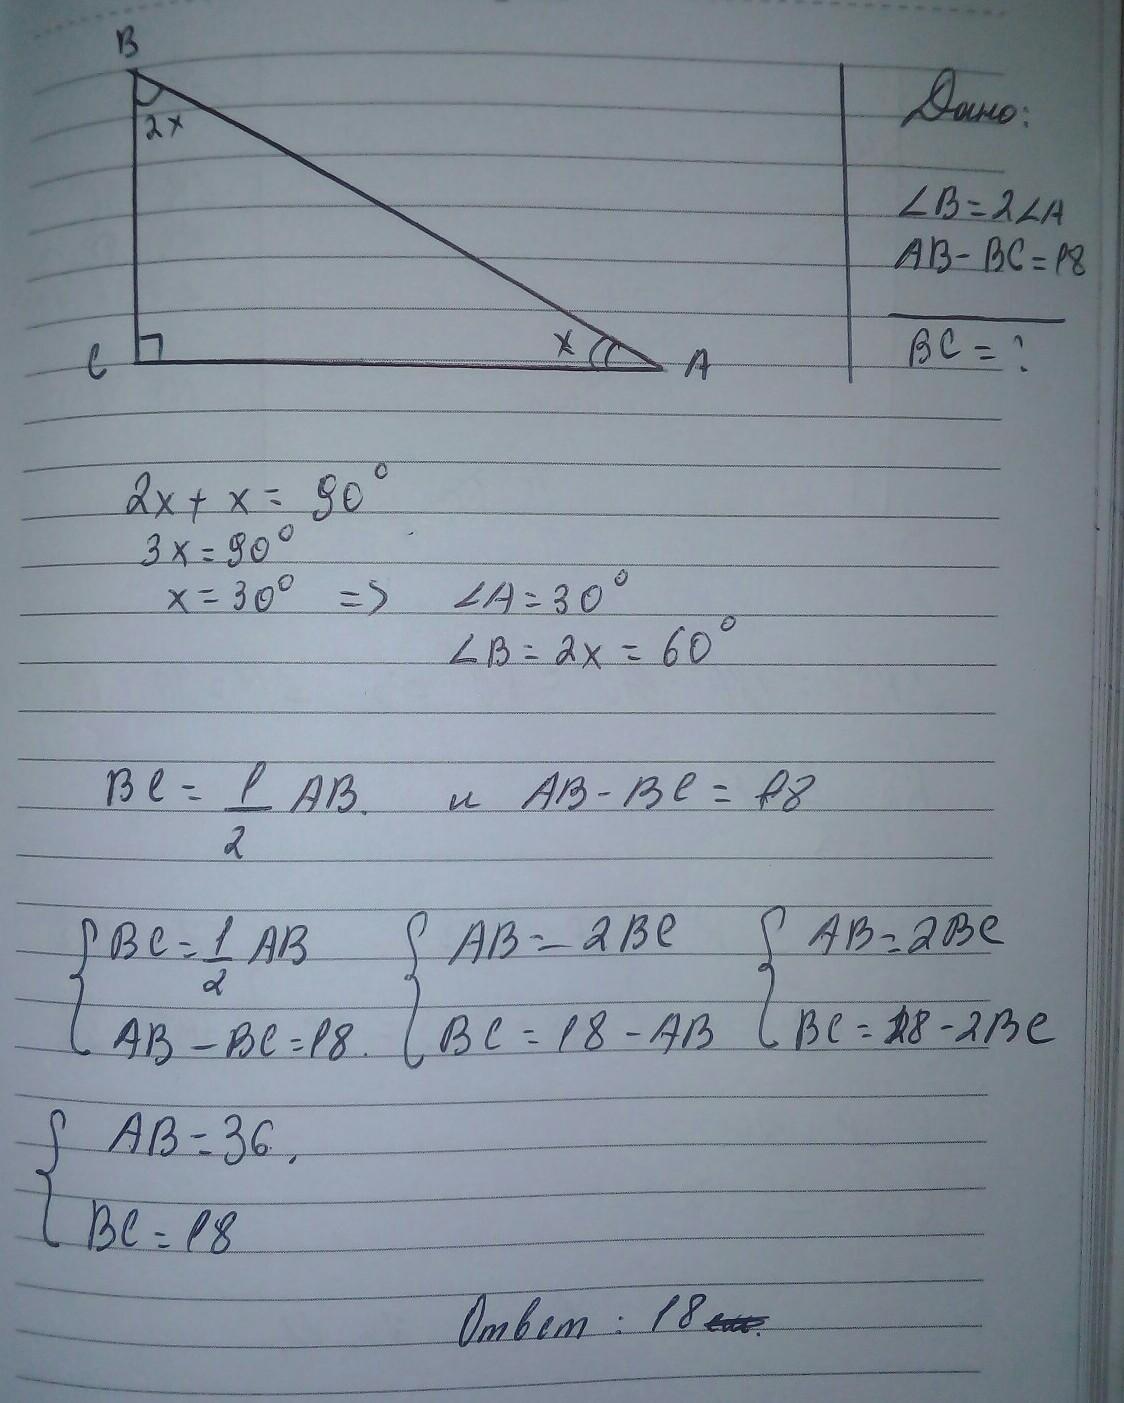 B
2x
C
x
A
Дано:
∠B=2∠A
AB-BC=18
BC=?
2x+x=90°
3x=90°
x=30° => ∠A=30°
∠B=2x=60°
BC=1/2 AB. и AB-BC=18
{ BC=1/2 AB { AB=2BC { AB=2BC
AB-BC=18. BC=18-AB BC=18-2BC
{ AB=36,
BC=18
Ответ: 18